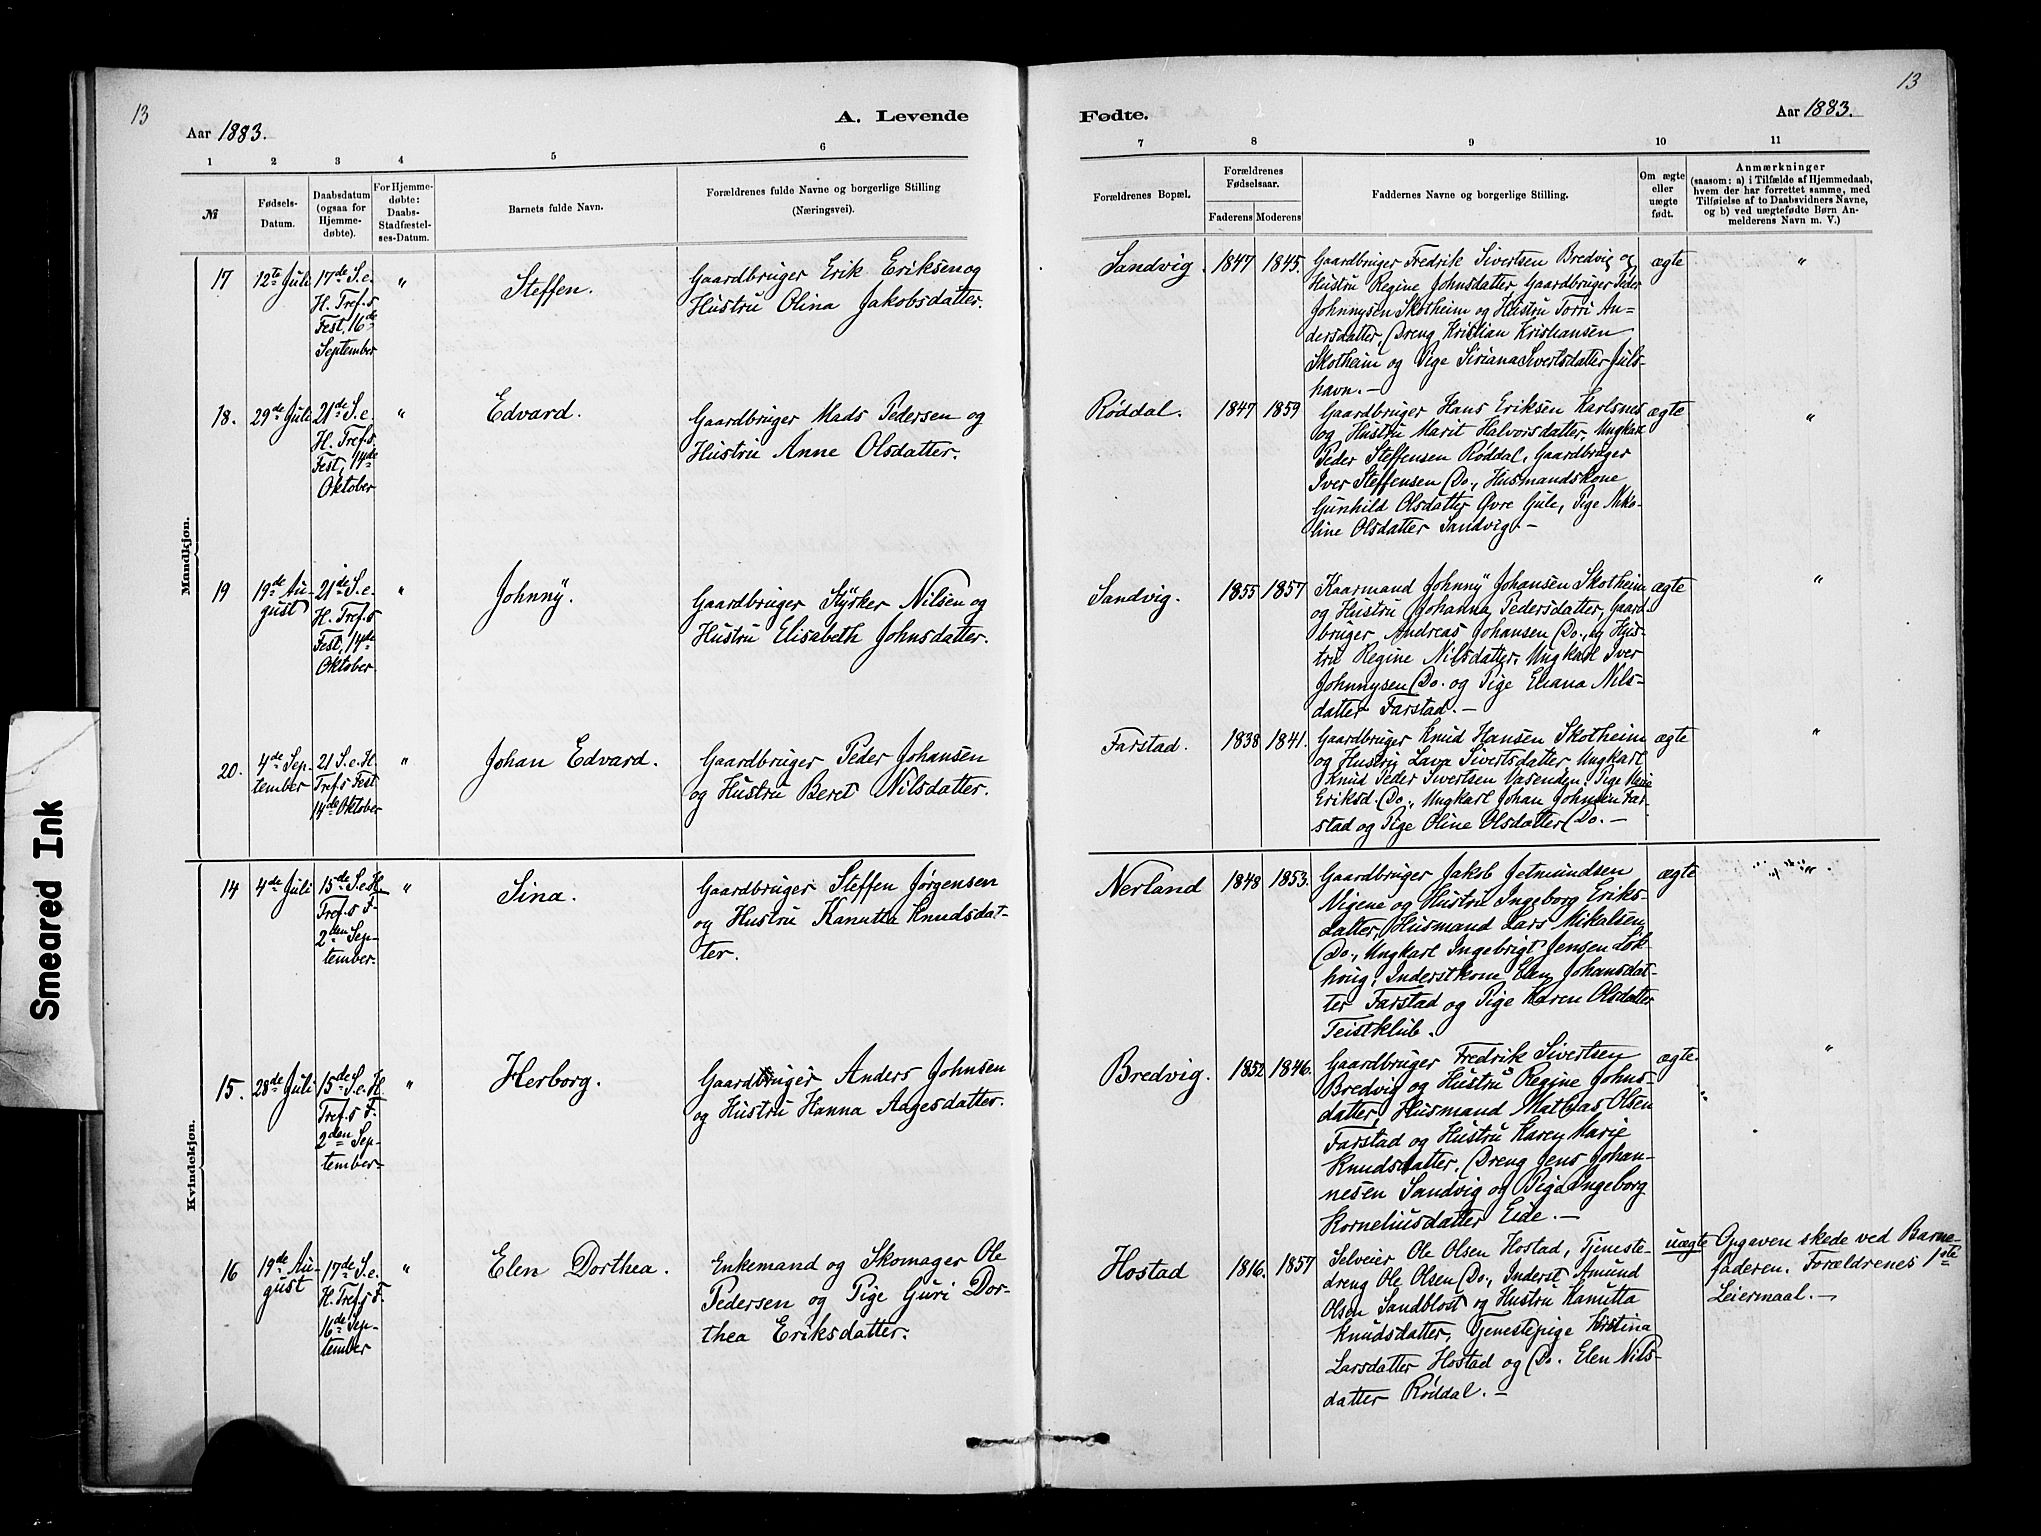 13
Aar 1883.
A. Levende
1 2 3 4 5 6
№
Fødsels-
Datum.
Daabsdatum
(ogsaa for
Hjemme-
døbte).
For Hjemme-
døbte:
Daabs-
Stadfæstel-
ses-Datum.
Barnets fulde Navn.
Forældrenes fulde Navne og borgerlige Stilling
(Næringsvei).
Mandkjøn.
17
12te Juli
17de S. e.
H. Tref.s
Fest, 16de
September
"
Steffen.
Gaardbruger Erik Eriksen og
Hustru Olina Jakobsdatter.
18.
29de Juli
21de S. e.
H. Tref.s
Fest, 14de
Oktober
"
Edvard.
Gaardbruger Mads Pedersen og
Hustru Anne Olsdatter.
19
19de Au-
gust
21de S. e.
H. Tref.s
Fest, 14de
Oktober
"
Johnny.
Gaardbruger Styrker Nilsen og
Hustru Elisabeth Johnsdatter.
20.
4de Sep-
tember
21 S. e. H.
Tref.s Fest
14de Oktober
"
Johan Edvard.
Gaardbruger Peder Johansen
og Hustru Beret Nilsdatter.
Kvindekjøn.
14
4de Juli
15de S. e. H.
Tref.s F.
2den Sep-
tember.
"
Sina.
Gaardbruger Steffen Jørgensen
og Hustru Kanutta Knudsdat-
ter.
15.
28de Juli
15de S. e. H.
Tref.s F.
2den Sep-
tember
"
Herborg.
Gaardbruger Anders Johnsen
og Hustru Hanna Aagesdatter.
16
19de Au-
gust
17de S. e.
H. Tref.s F.
16de Sep-
tember
"
Elen Dorthea.
Enkemand og Skomager Ole
Pedersen og Pige Guri Dor-
thea Eriksdatter.
Smeared Ink
13
Fødte.
Aar 1883.
7 8 9 10 11
Forældrenes Bopæl.
Forældrenes
Fødselsaar.
Faderens Moderens
Faddernes Navne og borgerlige Stilling.
Om ægte
eller
uægte
født.
Anmærkninger
(saasom: a) i Tilfælde af Hjemmedaab,
hvem der har forrettet samme, med
Tilføielse af to Daabsvidners Navne,
og b) ved uægtefødte Børn An-
melderens Navn m. V.)
Sandvig 1847 1845.
Gaardbruger Fredrik Sivertsen Bredvig og
Hustru Regine Johnsdatter, Gaardbruger Peder
Johnnysen Skotheim og Hustru Torri An=
dersdatter, Dreng Kristian Kristiansen
Skotheim og Pige Siriana Sivertsdatter Juls-
havn. —
ægte "
Røddal. 1847 1859
Gaardbruger Hans Eriksen Karlsnes
og Hustru Marit Halvorsdatter, Ungkarl
Peder Steffensen Røddal, Gaardbruger
Iver Steffensen Do., Husmandskone
Gunhild Olsdatter Øvre Gule, Pige Niko-
line Olsdatter Sandvig. —
ægte "
Sandvig. 1855 1857
Kaarmand Johnny Johansen Skotheim
og Hustru Johanna Pedersdatter, Gaard-
bruger Andreas Johansen Do., og Hus-
tru Regine Nilsdatter, Ungkarl Iver
Johnnysen Do. og Pige Eliana Nils-
datter Farstad. —
ægte "
Farstad. 1838 1841.
Gaardbruger Knud Hansen Skotheim
og Hustru Lava Sivertsdatter, Ungkarl
Knud Peder Sivertsen Vasenden, Pige Marie
Eriksd. Do., Ungkarl Johan Johnsen Far-
stad og Pige Oline Olsdatter Do. —
ægte "
Nerland 1848 1853.
Gaardbruger Jakob Jetmundsen
Vigene og Hustru Ingeborg Eriks-
datter, Husmand Lars Mikalsen
Do., Ungkarl Ingebrigt Jensen Løk-
houg, Inderstkone Elen Johansdat-
ter Farstad og Pige Karen Olsdatter
Teistklub.
ægte "
Bredvig. 1852 1846.
Gaardbruger Fredrik Sivertsen
Bredvig og Hustru Regine Johns-
datter, Husmand Mathias Olsen
Farstad og Hustru Karen Marie
Knudsdatter, Dreng Jens Johan-
nesen Sandvig og Pige Ingeborg
Korneliusdatter Eide. —
ægte "
Hostad 1816. 1857
Selveier Ole Olsen Hostad, Tjeneste-
dreng Ole Olsen Do., Inderst Amund
Olsen Sandblost og Hustru Kanutta
Knudsdatter, Tjenestepige Kristina
Larsdatter Hostad og Do. Elen Nils-
datter Røddal. —
uægte
Opgaven skede ved Barne-
faderen. Forældrenes 1ste
Leiermaal. —